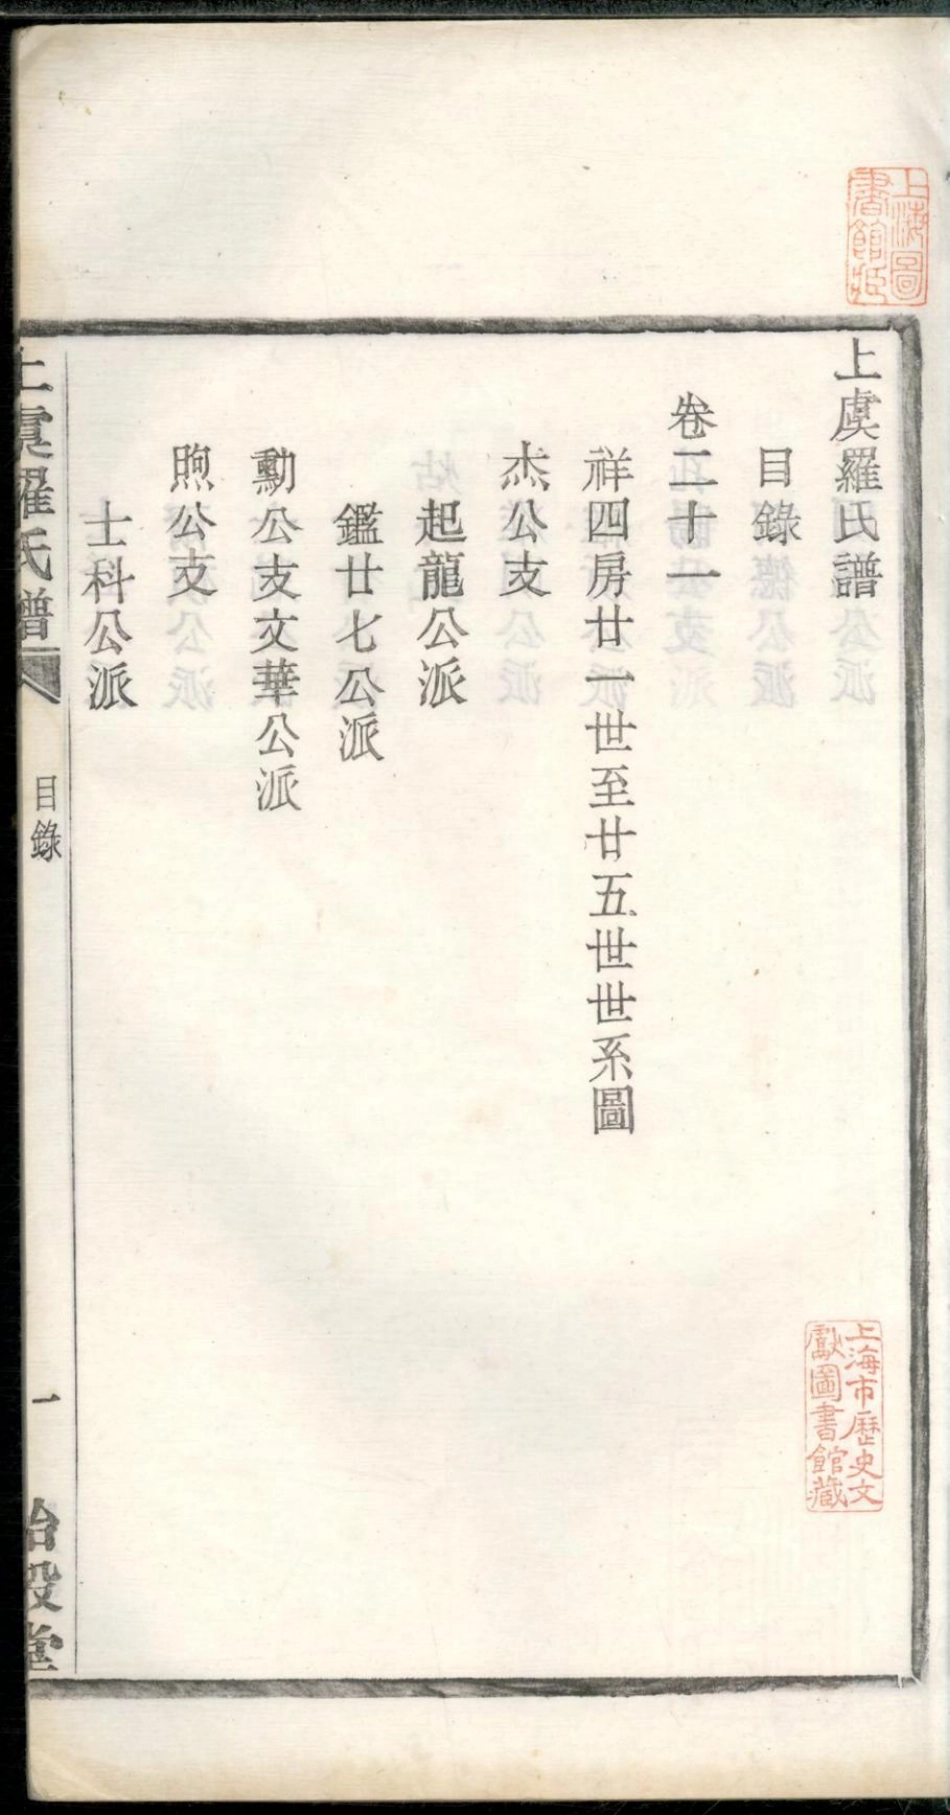 上虞羅氏譜
目錄
卷二十一
祥四房廿一世至廿五世世系圖
杰公支
起龍公派
鑑廿七公派
勳公支文華公派
煦公支
士科公派
上虞羅氏譜
目錄
一
詒穀堂
上海圖書館藏
上海市歷史文獻圖書館藏